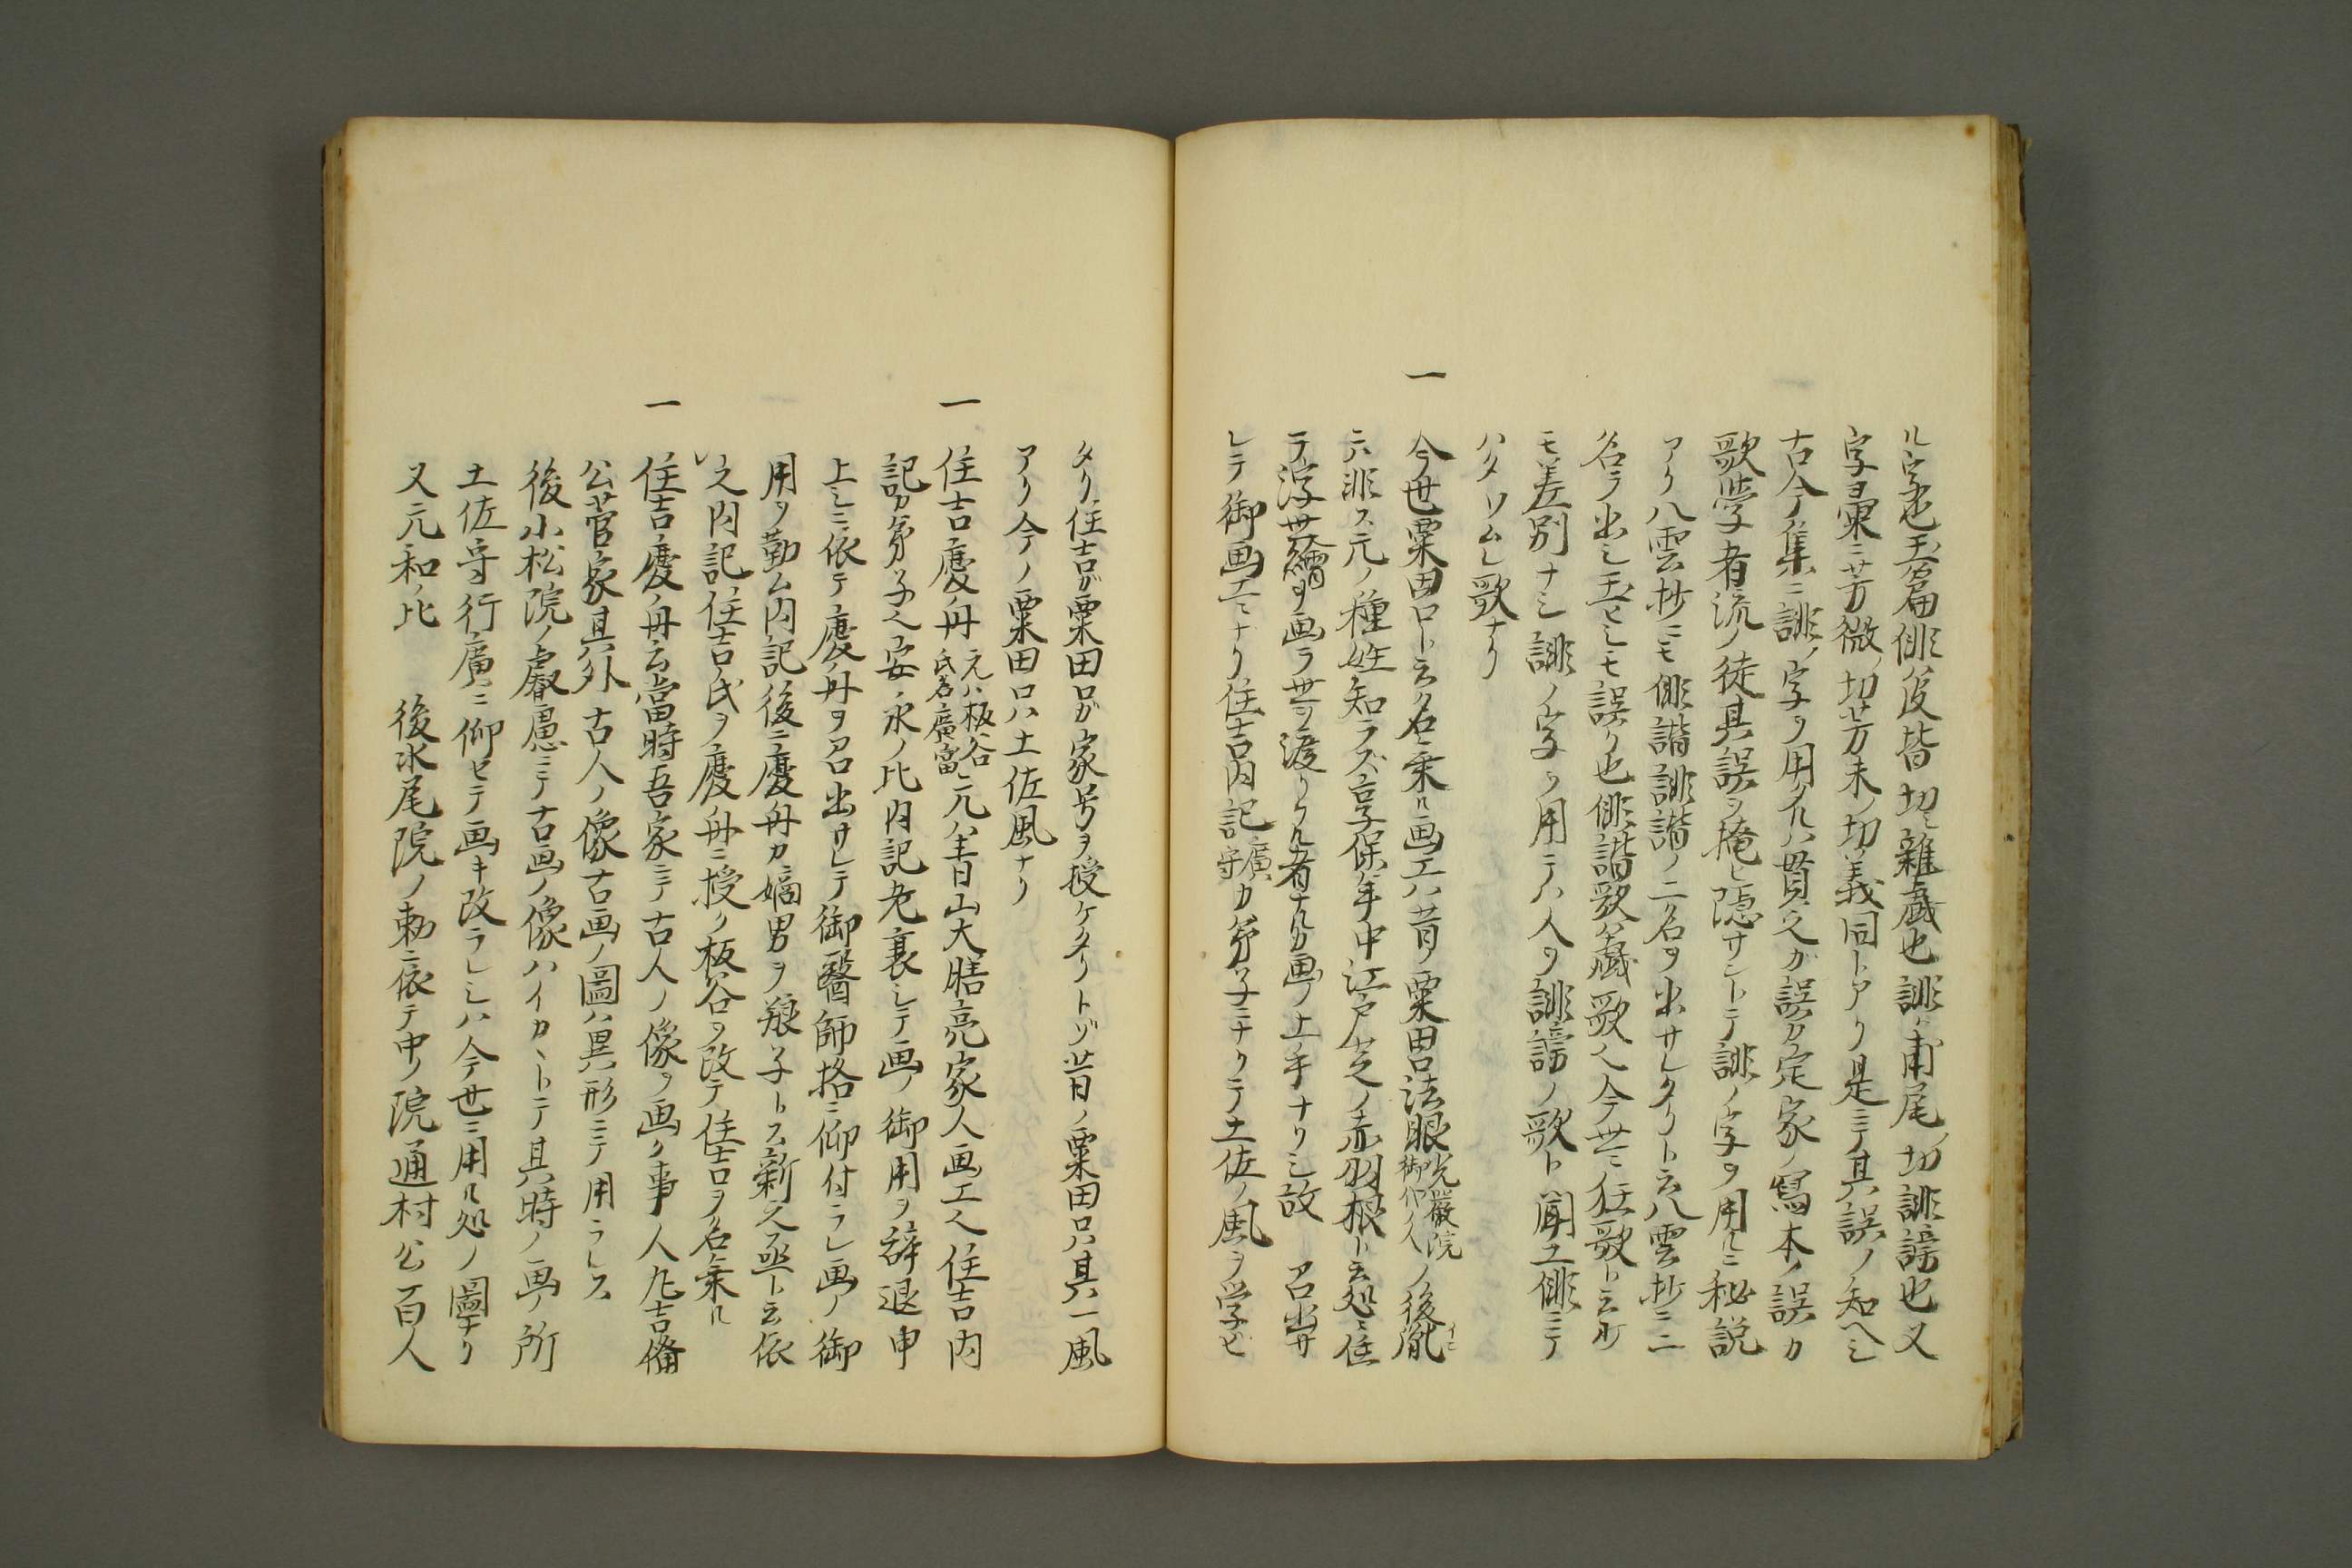 ル字也玉篇俳ハ皮皆ノ切雜戯也誹ハ甫尾ノ切誹謗也又
字彙ニ芳微ノ切芳未ノ切義同トアリ是ニテ其誤ノ知ヘシ
古今集ニ誹ノ字ヲ用タルハ貫之カ誤カ定家ノ寫本ノ誤カ
歌学者流ノ徒其誤ヲ掩ヒ隠サントテ誹ノ字ヲ用ルニ秘説
アリ八雲抄ニモ俳諧誹諧ノ二名ヲ出サレタリト云八雲抄ニ二
名ヲ出シ玉ヒシモ誤リ也俳諧歌ハ戯歌也今世ニ狂歌ト云所
モ差別ナシ誹ノ字ヲ用テハ人ヲ誹謗ノ歌ト聞ユ俳ニテ
ハタワムレ歌ナリ
一 今世粟田口ト云名乗ル画工ハ昔ノ粟田口法眼厳有院御代ノ人ノ後胤
ニハ非ス元ノ種姓知ラズ享保年中江戸芝ノ赤羽根ト云処ニ住
テ浮世繪ヲ画ラ世ヲ渡リタル者ナルカ画ノ上手ナリシ故 召出サ
レテ御画工ニナリ住吉内記廣守カ弟子ニナリテ土佐ノ風ヲ学ビ
タリ住吉ガ粟田口ガ家号ヲ授ケタリトゾ昔ノ粟田口ハ其一風
アリ今ノ粟田口ハ土佐風ナリ
一 住吉慶舟元ハ板谷氏名廣當元ハ青山大膳亮家人画工也住吉内
記カ弟子也安永ノ比内記老衰シテ画ノ御用ヲ辞退申
上シニ依テ慶舟ヲ召出サレテ御醫師格ニ仰付ラレ画ノ御
用ヲ勤ム内記後ニ慶舟カ嫡男ヲ養子トス新之丞ト云依
之内記住吉ノ氏ヲ慶舟ニ授ク板谷ヲ改テ住吉ヲ名乗ル
一 住吉慶舟云當時吾家ニテ古人ノ像ヲ画ク事人丸吉備
公菅家其外古人ノ像古画ノ圖ハ異形ニテ用ラレス
後小松院ノ叡慮ニテ古画ノ像ハイカヽトテ其時ノ画所
土佐守行廣ニ仰セテ画キ改ラレシハ今世ニ用ル処ノ圖ナリ
又元和ノ比 後水尾院ノ勅ニ依テ中ノ院通村公百人